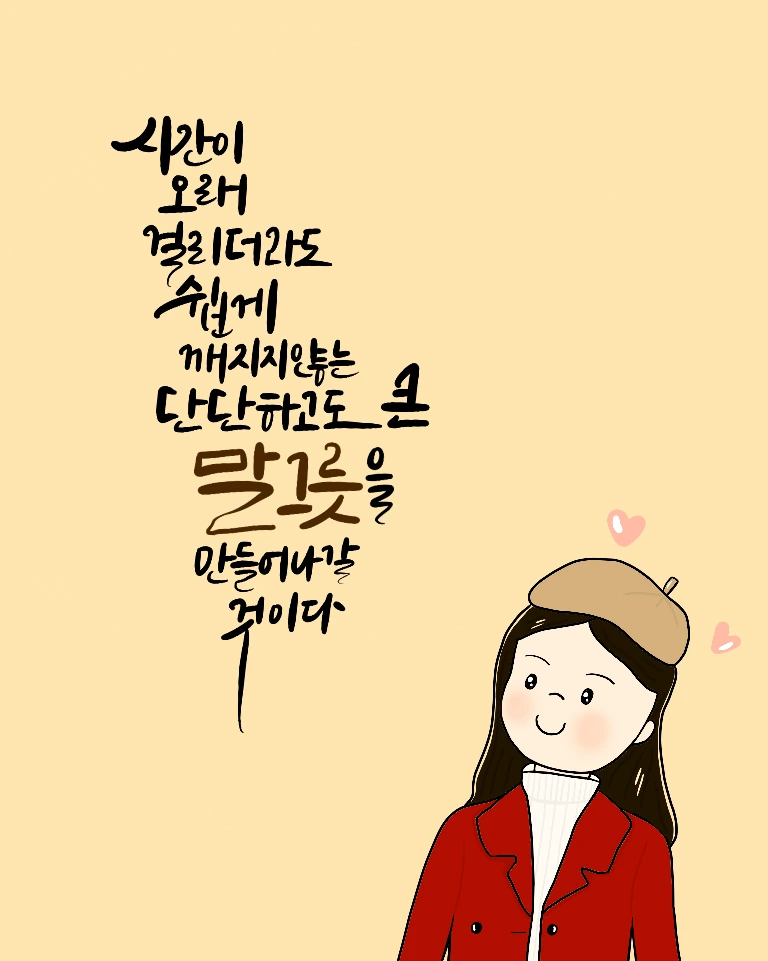 시간이
오래
걸리더라도
쉽게
깨지지않는
단단하고도 큰
말그릇을
만들어나갈
것이다.